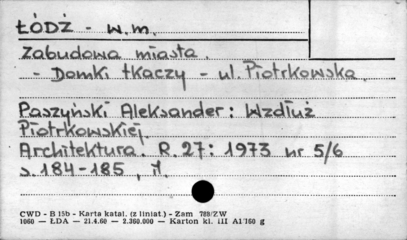 ŁÓDŹ - w.m.
Zabudowa miasta.
- Domki tkaczy - ul. Piotrkowska
Paszyński Aleksander: Wzdłuż
Piotrkowskiej.
Architektura. R. 27: 1973 nr 5/6
s. 184-185, il.
CWD - B 15b - Karta katal. (z liniat.) - Zam 789/ZW
1060 — ŁDA — 21.4.60 — 2.360.000 — Karton kl. III A1/160 g